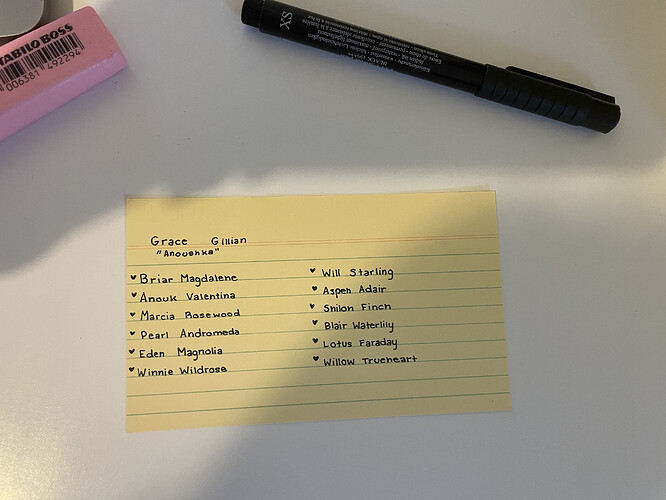 STABILO BOSS
006381 492294
XS
Grace Gillian
"Anoushka"
♥ Briar Magdalene
♥ Anouk Valentina
♥ Marcia Rosewood
♥ Pearl Andromeda
♥ Eden Magnolia
♥ Winnie Wildrose
♥ Will Starling
♥ Aspen Adair
♥ Shiloh Finch
♥ Blair Waterlily
♥ Lotus Faraday
♥ Willow Trueheart